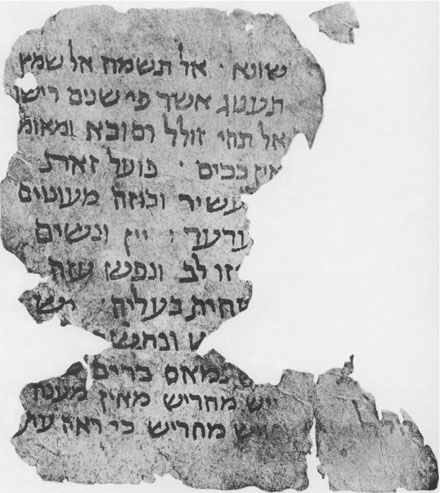 שונא · אל תשמח אל שמץ
תענוג אשר פי שנים רישו
אל תהי זולל וסובא ומאומ
אין בכיס · פועל זאת
עשיר ובוזה מעוטים
ערער · יין ונשים
יזו לב ונפש עזה
שחית בעליה · יש
ש ונחש
נמאס ברי
יש מחריש מאין מענה
יש מחריש כי ראה עת